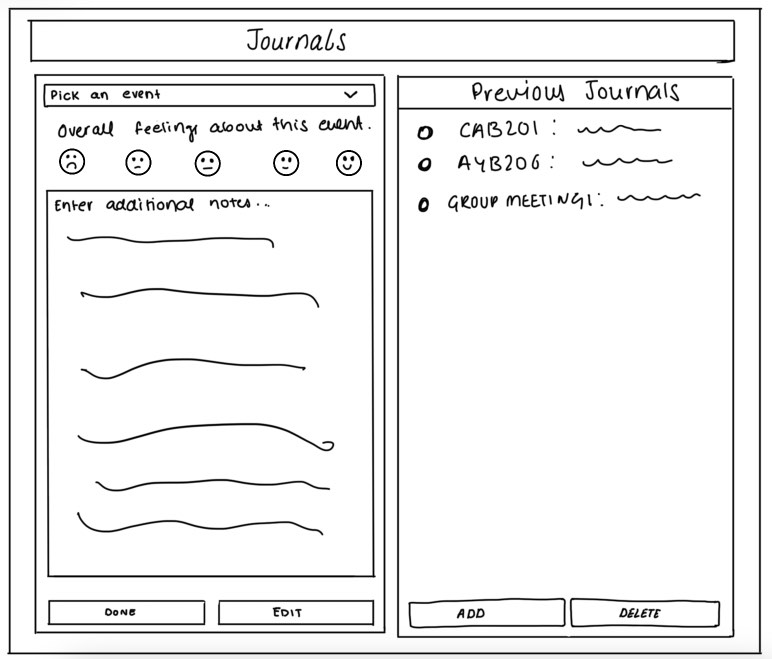 Journals
Pick an event
Overall feelings about this event.
Enter additional notes...
DONE
EDIT
Previous Journals
CAB201:
AYB206:
GROUP MEETING1:
ADD
DELETE